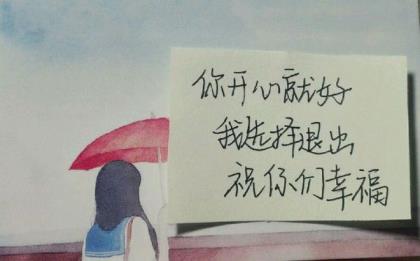 你开心就好
我选择退出
祝你们幸福